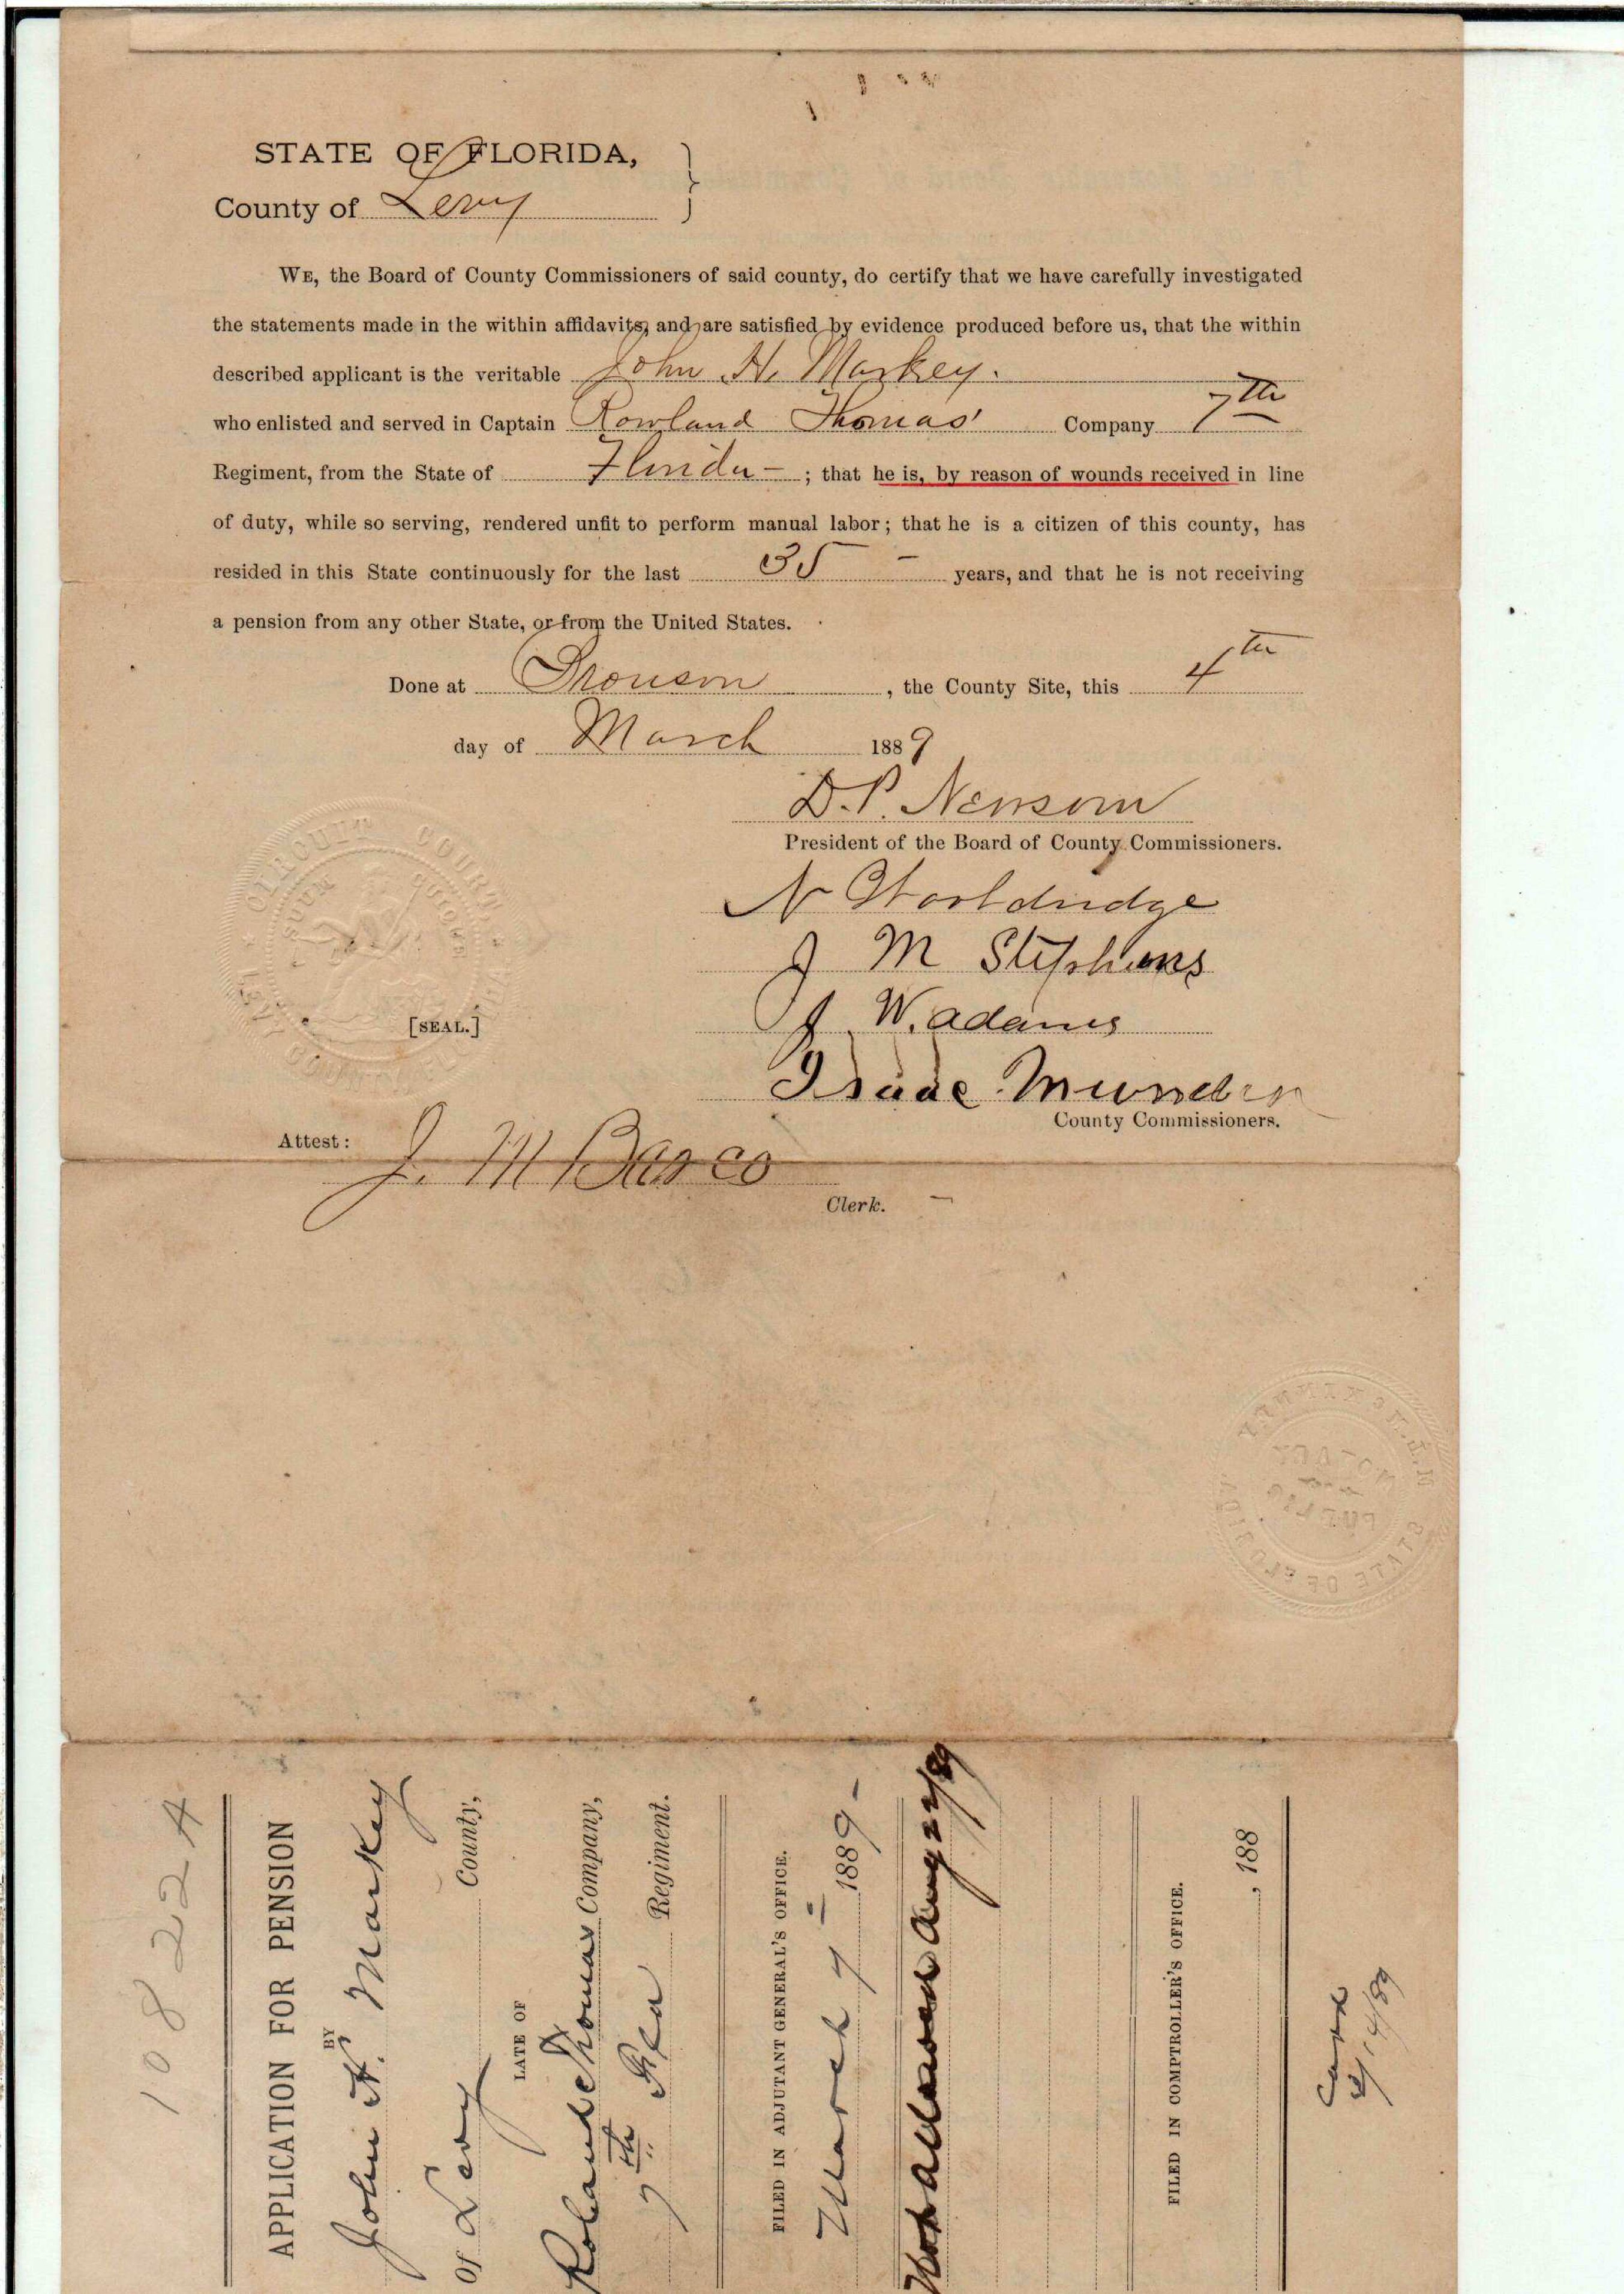 STATE OF FLORIDA,
County of Levy
WE, the Board of County Commissioners of said county, do certify that we have carefully investigated
the statements made in the within affidavits, and are satisfied by evidence produced before us, that the within
described applicant is the veritable John H. Markey.
who enlisted and served in Captain Rowland Thomas' Company 7th
Regiment, from the State of Florida – ; that he is, by reason of wounds received in line
of duty, while so serving, rendered unfit to perform manual labor; that he is a citizen of this county, has
resided in this State continuously for the last 35 – years, and that he is not receiving
a pension from any other State, or from the United States.
Done at Bronson, the County Site, this 4th
day of March 1889
D.P. Newsom
President of the Board of County Commissioners.
N Wooldridge
J M Stephens
J. W. Adams
Isaac
County Commissioners.
[SEAL.]
CIRCUIT COURT
LEVY COUNTY FLORIDA
Attest: J. M Barco
Clerk.
NOTARY PUBLIC
STATE OF FLORIDA
10822A
APPLICATION FOR PENSION
BY
John H. Markey
Of Levy County,
LATE OF
Roland Thomas Company,
7th Fla Regiment.
FILED IN ADJUTANT GENERAL'S OFFICE.
March 7 – 1889 –
Not allowed Aug 22/89
FILED IN COMPTROLLER'S OFFICE.
, 188